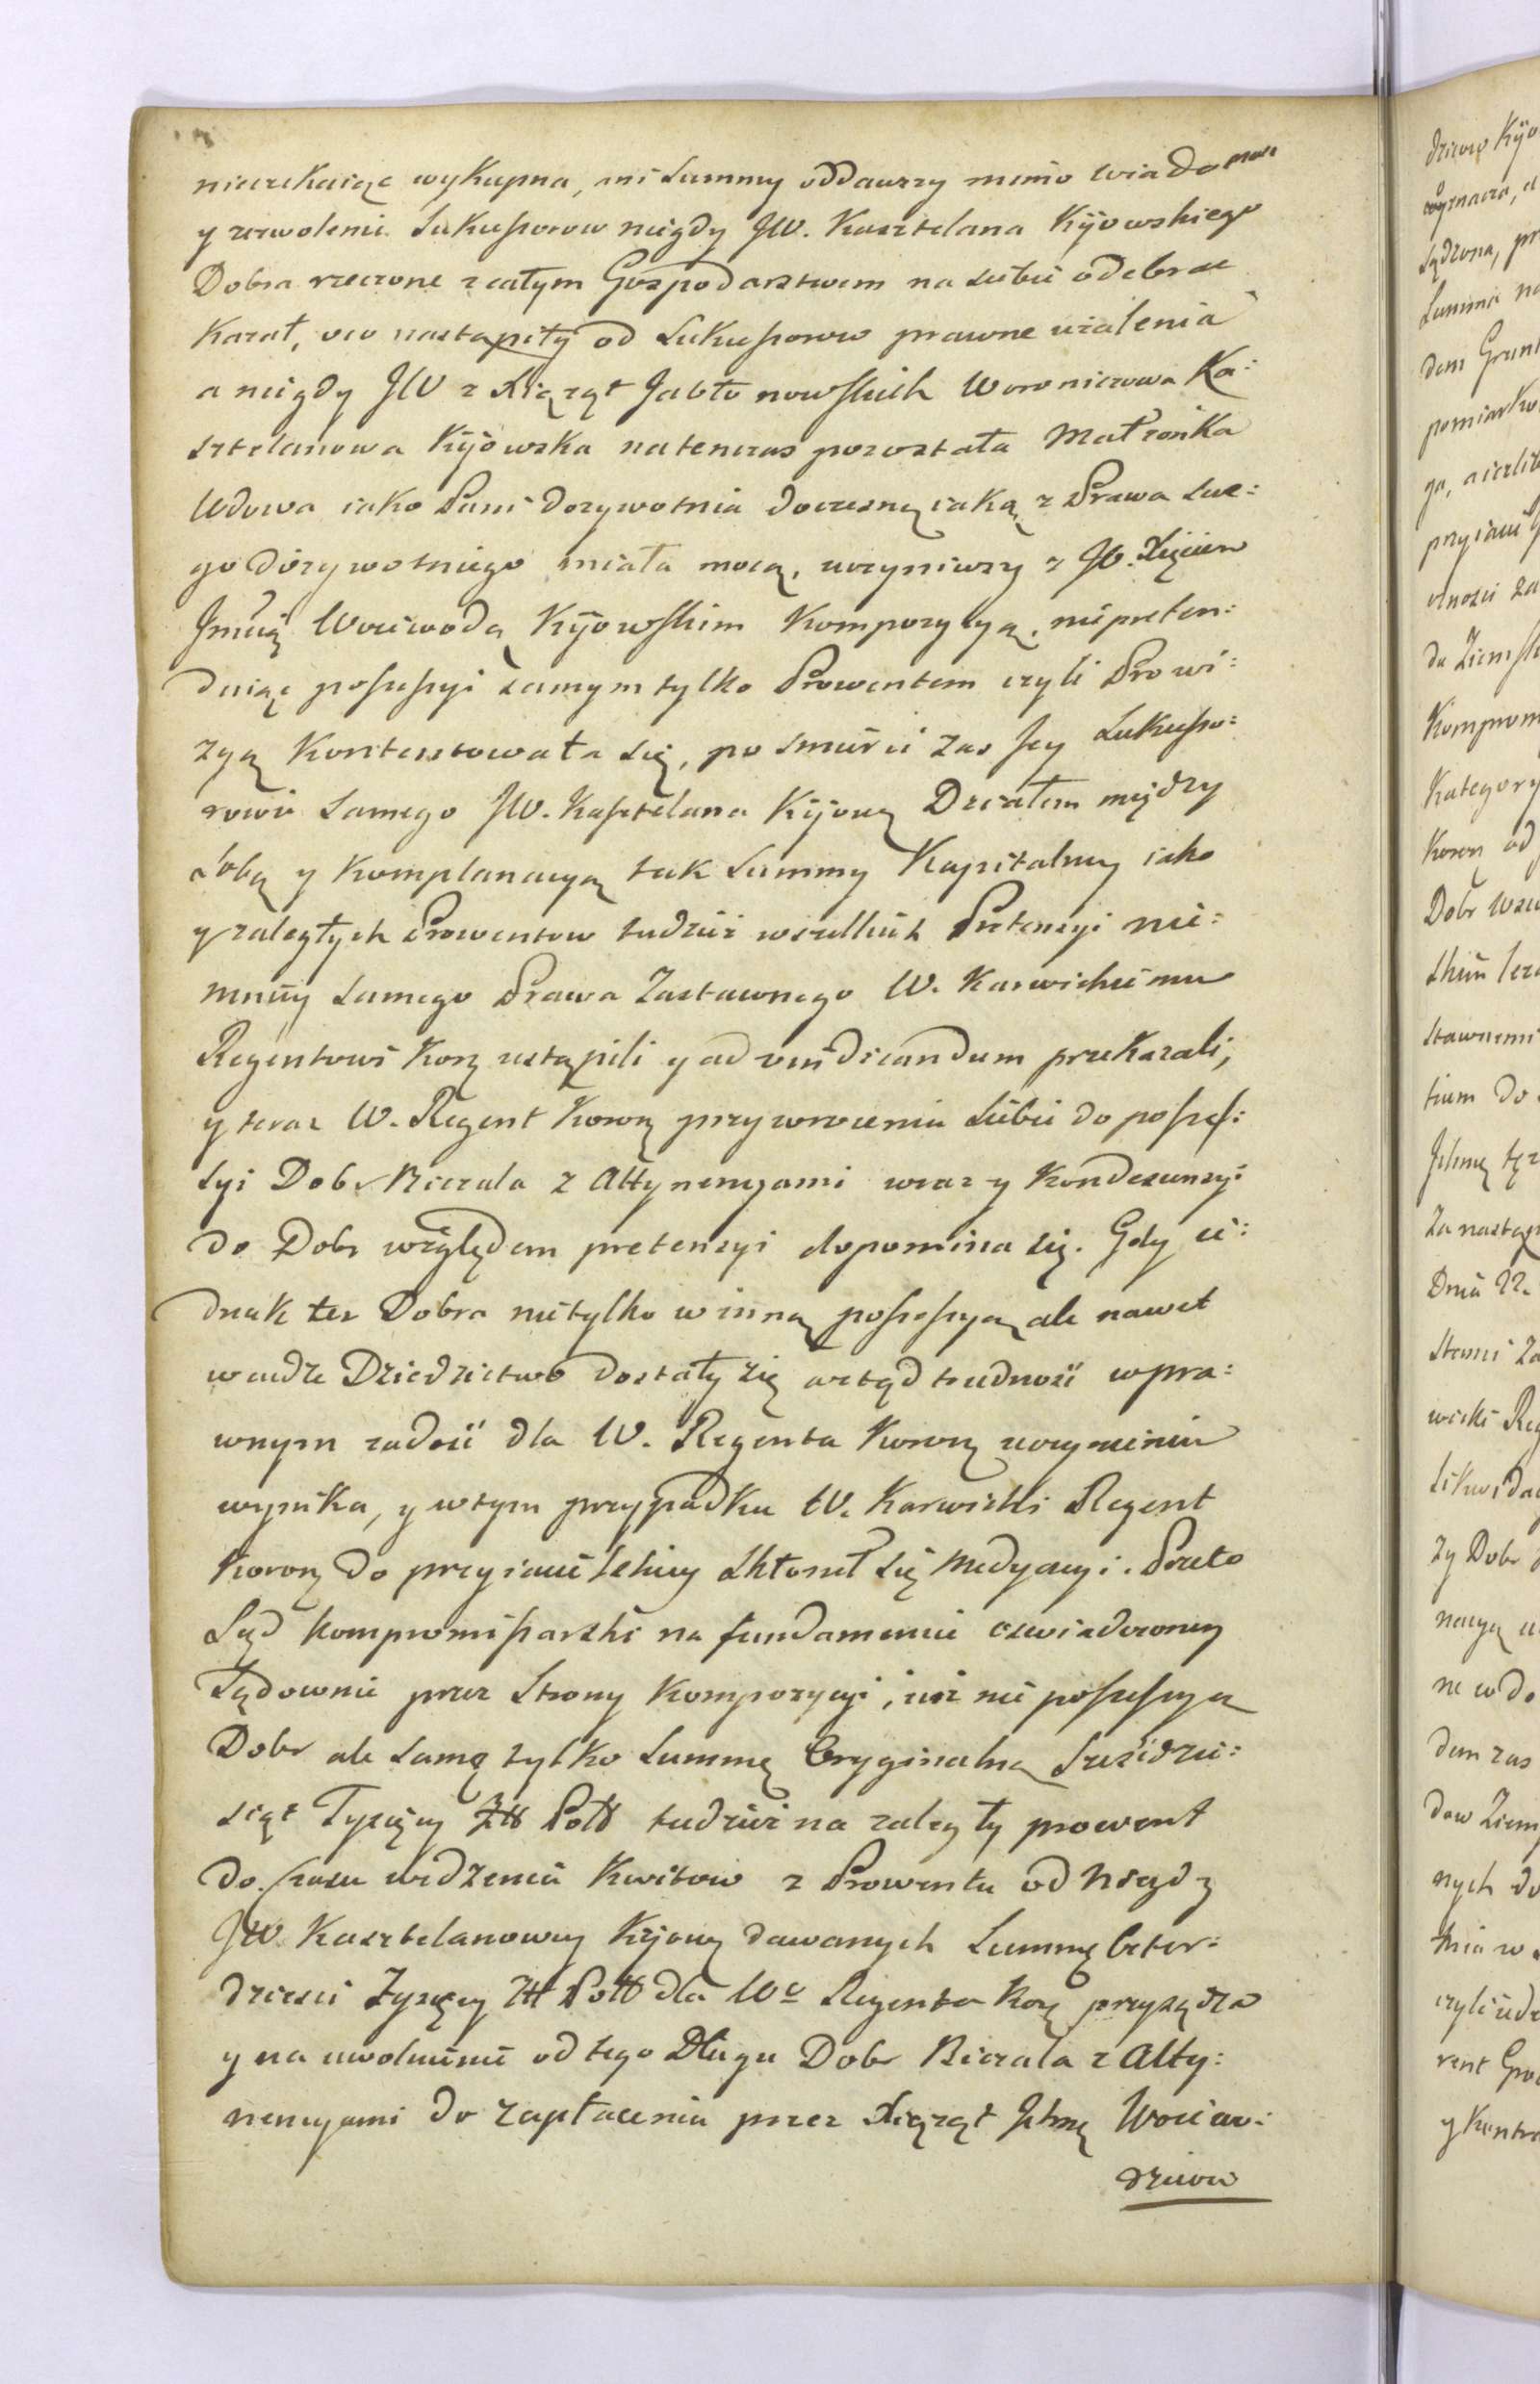 nieczekaiąc wykupna, ni Summy oddawszy mimo wiadomość
y zezwolenie Sukcessorow niegdy JW. Kasztelana Kijowskiego
Dobra rzeczone z całym Gospodarstwem na siebie odebrać
kazał, o co nastąpiły od Sukcessorow prawne użalenia
a niegdy JW z Xiążąt Jabłonowskich Woroniczowa Ka:
sztelanowa Kijowska natenczas pozostała Małżonka
Wdowa iako Pani Dozywotnia doczesną iaką z Prawa swe:
go dożywotniego miała mocą, uczyniwszy z JO. Xięciem
Jmcią Woiewodą Kijowskim Kompozycyą, niepreten:
duiąc possessyi samym tylko Prowentem czyli Prowi:
zyą kontentowała się, po śmierci zas Jey Sukcesso:
rowie samego JW. Kasztelana Kijowꝫ Działem między
sobą y Komplanacyą tak Summy Kapitalney iako
y zaległych Prowentow tudzież wszelkich Pretensyi nie:
mniey samego Prawa Zastawnego W. Karwickiemu
Regentowi Korꝫ ustąpili y ad vindicandum przekazali,
y teraz W. Regent Koronꝫ przywrocenia siebie do posses:
syi Dobr Biczala z Attynencyami wraz y Kondescensyi
do Dobr względem pretensyi dopomina się. Gdy ie:
dnak też Dobra nietylko w inną possessyą ale nawet
w cudze Dziedzictwo dostały się ztąd trudność w pra:
wnym zadość dla W. Regenta Koronꝫ uczynieniu
wynika, y w tym przypadku W. Karwicki Regent
Koronꝫ do przyiacielskiey skłonił się Medyacyi. Przeto
Sąd kompromissarski na fundamencie oświadczoney
Sądownie przez Strony kompozycyi, iuż nie possessyą
Dobr ale samą tylko Summę Oryginalną Sześćdzie:
siąt Tysięcy Złł Poll tudzież na zaległy prowent
do czasu widzenia Kwitow z Prowentu od Niegdy
JW Kasztelanowey Kijowꝫ dawanych Summę Czter:
dzieści Tysięcy Złł Poll dla Wo Regenta Korꝫ przysądza
y na uwolnienie od tego Długu Dobr Biczala z Atty:
nencyami do zapłacenia przez Xiążąt Ichmę Woiew:
dziców